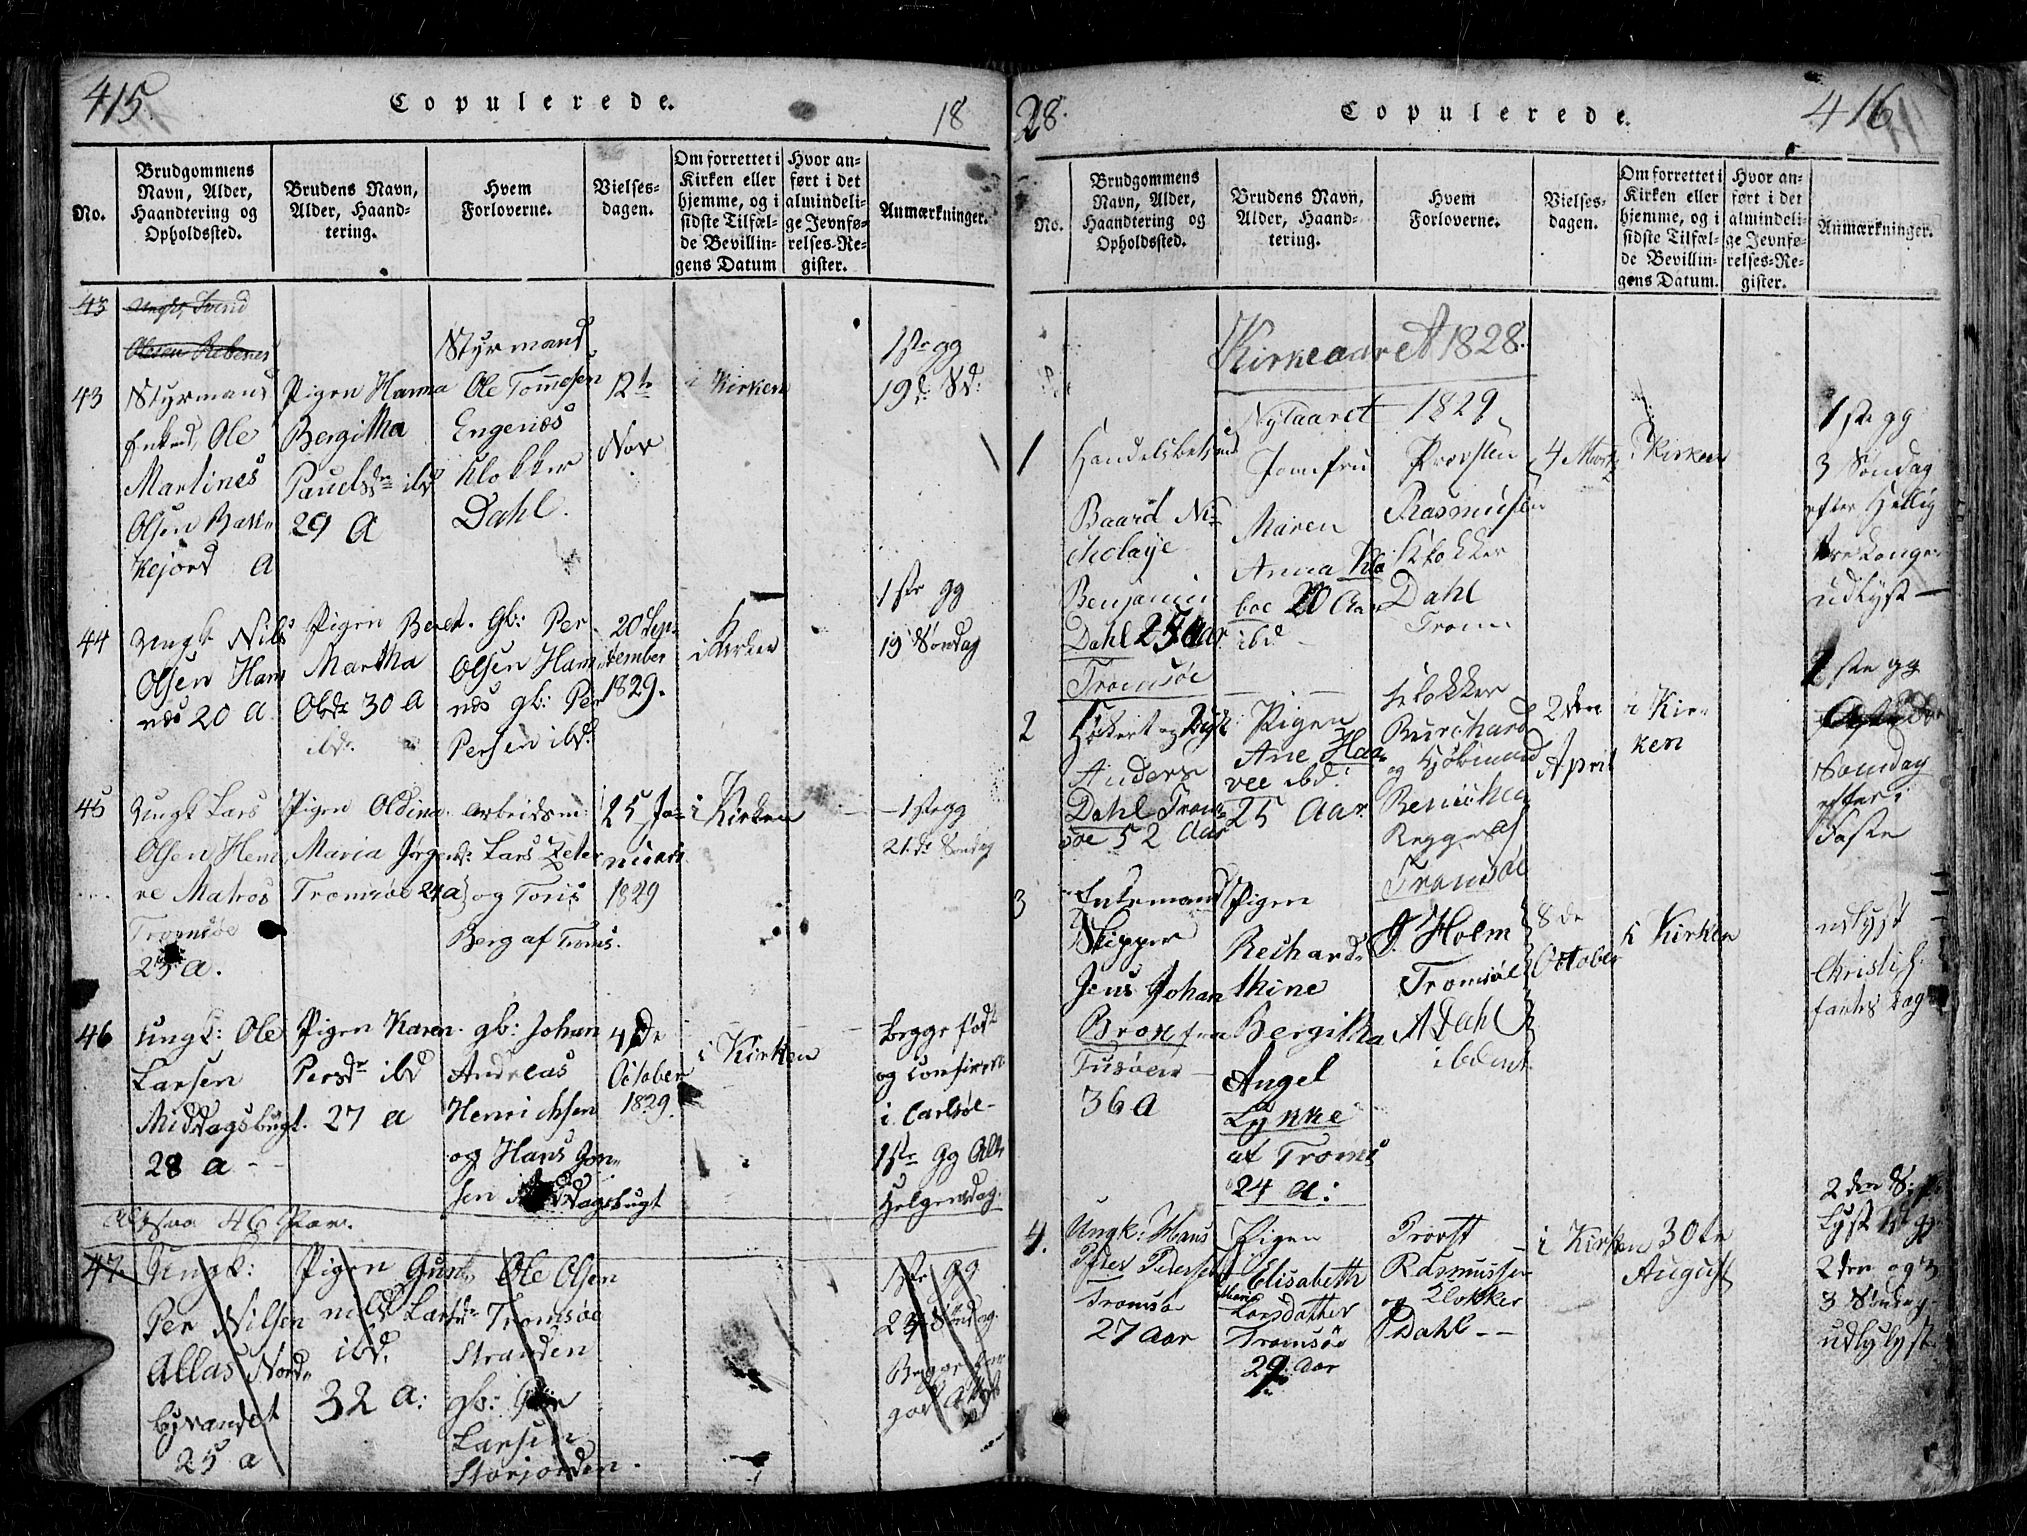 415.
Copulerede.
18
No.
Brudgommens
Navn, Alder,
Haandtering og
Opholdssted.
Brudens Navn,
Alder, Haand-
tering.
Hvem
Forloverne.
Vielses-
dagen.
Om forrettet i
Kirken eller
hjemme, og i
sidste Tilfæl-
de Bevillin-
gens Datum
Hvor an-
ført i det
almindeli-
ge Jevnfø-
relses-Re-
gister.
Anmærkninger.
43
Ungk, Svend
Olesen
43
Styrmand
Enkmd, Ole
Martines
Olsen Bak-
kejord A
Pigen Hanna
Bergitha
Pauelsdr ibd
29 A
Styrmand
Ole Tomesen
Engenæs
Klokker
Dahl.
12te
Nov
i Kirken
1ste gg
19de Sd:
44
Ungk Nils
Olsen Ham
næs 20 A
Pigen Beret
Martha
Olsdr 30 A
ibd.
gb: Per
Olsen Ham
næs gb: Per
Persen ibd.
20 Sep-
tember
1829.
i Kirken
1ste gg
19 Søndag
45
Ungk Lars
Olsen Hem
re Matros
Tromsøe
25 A.
Pigen Oldina
Maria Jørgendr
Tromsøe 24 a
arbeidsm:
Lars Zeter
og Tonis
Berg af Troms.
25 Ja-
nuari
1829
i Kirken
1ste gg
21de Søndag
46
Ungk: Ole
Larsen
Middagsbugt.
28 a
Pigen Karen
Persdr ibd
27 a
gb: Johan
Andreas
Henrichsen
og Hans Jon-
sen Middagsbugt
4de
October
1829.
i Kirken
begge født
og confirm
i Carlsøe
1ste Gg Alle
Helgensdag.
Altsaa 46 Par.
47.
Ungk:
Per Nilsen
Allas Nord-
byvandet
25 a
Pigen Gun-
nild Larsdr
ibd.
32 a:
Ole Olsen
Tromsøe
Stranden
gb: Per
Larsen
Storjorden.
1ste gg
23 Søndag.
Begge
28.
Copulerede.
416
No.
Brudgommens
Navn, Alder,
Haandtering og
Opholdssted.
Brudens Navn,
Alder, Haand-
tering.
Hvem
Forloverne.
Vielses-
dagen.
Om forrettet i
Kirken eller
hjemme, og i
sidste Tilfæl-
de Bevillin-
gens Datum.
Hvor an-
ført i det
almindeli-
ge Jevnfø-
relses-Re-
gister.
Anmærkninger.
Kirkeaaret 1828.
Nytaaret 1829
1
Handelsbetjent
Baard Ni-
cholaye
Benjamin
Dahl 25 Aar
Tromsøe
Jomfru
Maren
Anna Klæ
boe 20 Aar
ibd
Provsten
Rasmusen
Klokker
Dahl
Trom
4 Marts
i Kirken
1ste gg
3 Søndag
efter Hellig
tre Konger
udlyst
2
Anders
Dahl Trom-
søe 52 Aar
Pigen
Ane Haa-
vee ibd.
25 Aar.
Klokker
Burchard
og
af
Tromsøe
2den
April
i Kir-
ken
1ste gg
Søndag
efter i
Faste
3
Enkemand
Skipper
Jens Johan
Brox fra
Tusøen
36 A
Pigen
Rechard-
thine
Bergitha
Angel
Lykke
af Troms
24 A:
J Holm
Tromsøe
A Dahl
ibident
8de
October
i Kirken
udlyst
Christi H.
fartes Dag
4.
Ungk: Hans
Peder Pedersen
Tromsø
27 Aar
Pigen
Elisabeth
Maria
Larsdatter
Tromsøe
29 Aar
Provst
Rasmussen
og Klokker
Dahl --
i Kirken 30te
August
2den S:
Lyst 1st gg
2den og
3 Søndag
udlylyst